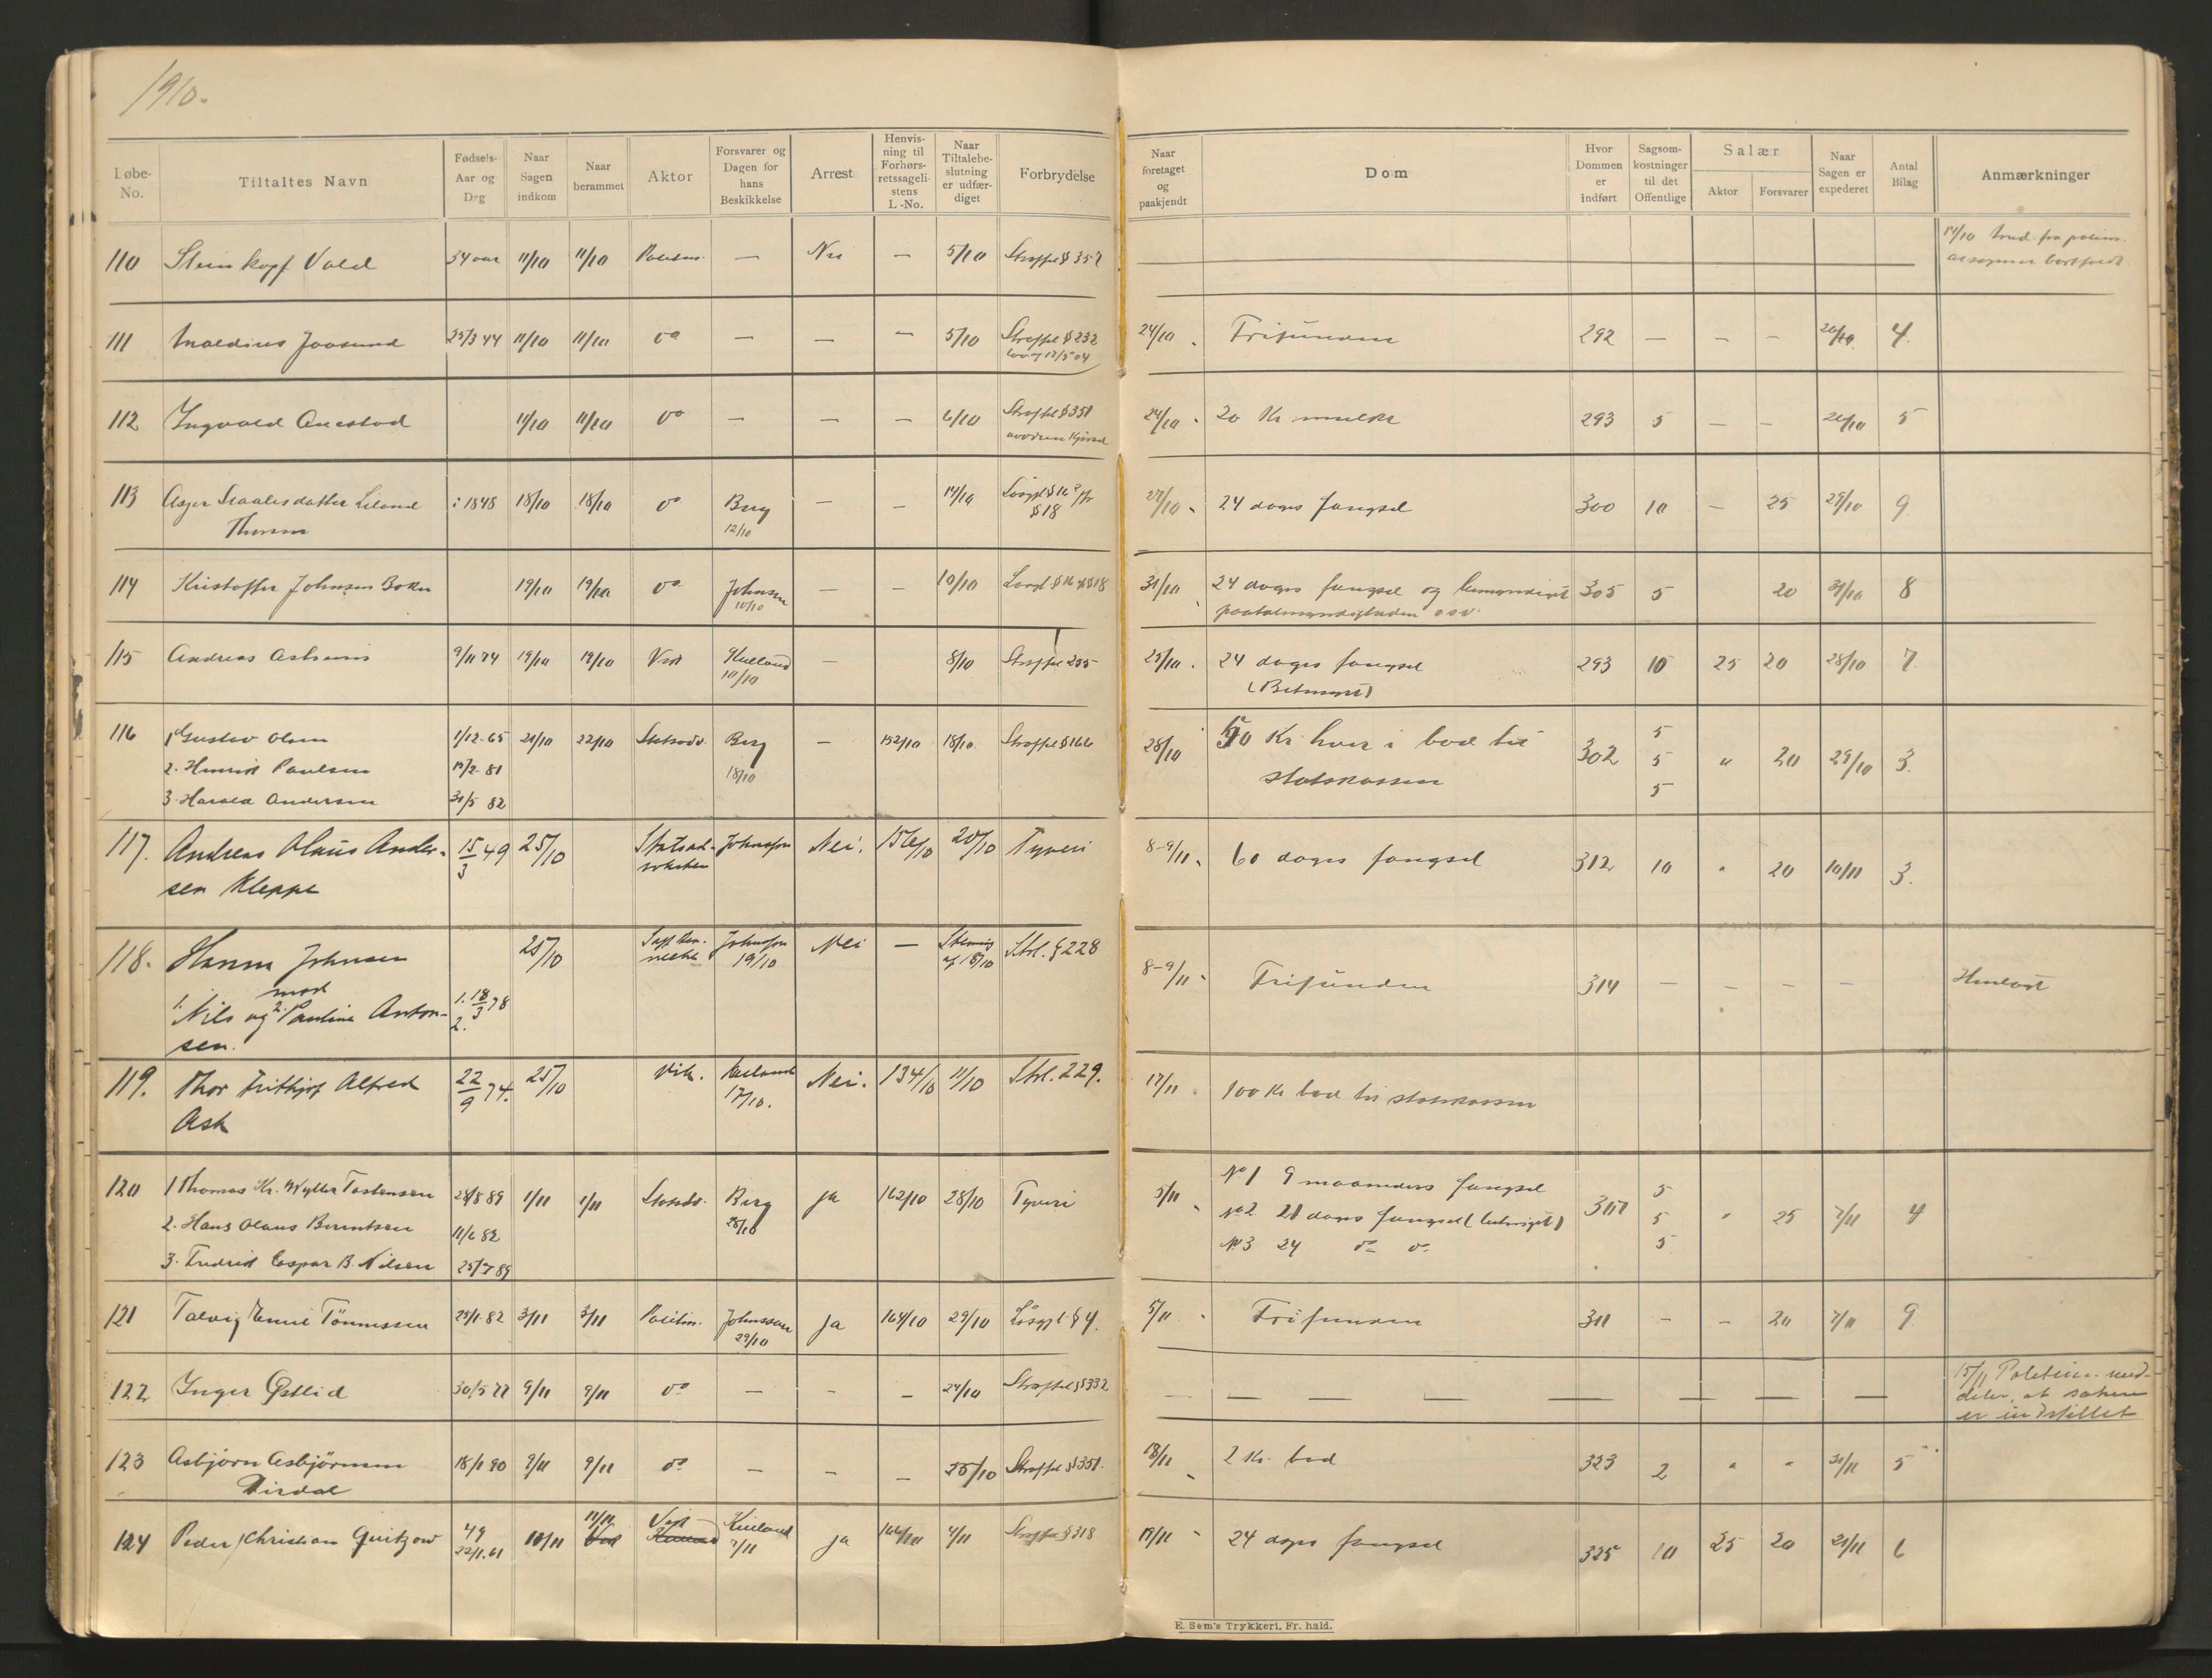 1910.
Løbe-No. Tiltaltes Navn Fødsels-Aar og Dag Naar Sagen indkom Naar berammet Aktor Forsvarer og Dagen for hans Beskikkelse Arrest Henvisning til Forhørsretssagelistens L.-No. Naar Tiltalebeslutning er udfærdiget Forbrydelse Naar foretaget og paakjendt Dom Hvor Dommen er indført Sagsomkostninger til det Offentlige Salær Aktor Forsvarer Naar Sagen er expederet Antal Bilag Anmærkninger
110 Steinkopf Vold 34 aar 11/10 11/10 Politim. — Nei — 5/10 Straffel § 357 14/10
111 25/3 44 11/10 11/10 do — — — 5/10 Straffel § 232 24/10 Frifunden 292 — — — 4
lov af 12/5 04
112 Ingvald Auestad 11/10 11/10 do — — — 6/10 Straffel § 351 24/10 20 Kr mulkt 293 5 — — 26/10 5
113 i 1848 18/10 18/10 do Berg — — 14/10 Løsgl § 16 jfr 27/10 24 dages fængsel 300 10 — 25 29/10 9
12/10 § 18
114 Kristoffer Johnsen Bokn 19/10 19/10 do Johnsen — — 10/10 Løsgl § 16 jf § 18 31/10 24 dages fængsel og 305 5 20 31/10 8
10/10 osv.
115 Andreas 9/11 74 19/10 19/10 Vedt Kielland — 8/10 Straffel 255 25/10 24 dages fængsel 293 10 25 20 28/10 7
10/10 (Betinget)
116 1 Gustav Olsen 1/12-65 21/10 22/10 Statsadv. Berg — 152/10 18/10 Straffel § 166 28/10 50 Kr hver i bod til 302 5 " 20 29/10 3.
2. Henrik Paulsen 81 18/10 statskassen 5
3 Harald Andersen 31/5 82 5
117. Andreas Olaus Ander- 15/3 49 25/10 Statsad- Johnssen Nei. 156/10 20/10 Tyveri 8-9/11 60 dages fængsel 312 10 " 20 10/11 3.
sen Kleppe vokaten
118. Hanna Johnsen 25/10 Johnssen Nei — Strl. § 228 8-9/11 Frifunden 314 — — — — —
mod 19/10
1. Nils og 2. Pauline Anton- 1. 18/3 78
sen. 2.
119. Thor Frithjof Alfred 22/9 74. 25/10 Vik. Kielland Nei. 134/10 11/10 Strl. 229. 17/11 100 Kr bod til statskassen
Ask 17/10.
120 1 Thomas Kr. Wylter Tostensen 28/8 89 1/11 1/11 Statsadv. Berg ja 162/10 28/10 Tyveri 5/11 No 1 9 maaneders fængsel 307 5 " 25 7/11 4
2. Hans Olaus Berentsen 11/6 82 28/10 No 2 21 dages fængsel (betinget) 5
3. Fredrik Caspar B. Nilsen 25/7 89 No 3 24 do do. 5
121 Talvig Emil Tönnessen 25/1 82 3/11 3/11 Politim. Johnssen ja 164/10 29/10 Løsgl. § 4. 5/11 Frifunden 311 — — 20 7/11 9
29/10
122 Inger Østlid 30/5 77 9/11 9/11 do — — — 24/10 Straffel § 332 — — — — — — — 15/11 Politim. med-
deler, at saken
er indstillet
123 Asbjørn Asbjörnsen 18/1 90 9/11 9/11 do — — — 25/10 Straffel § 351. 18/11 2 Kr. bod 323 2 " " 21/11 5
Dirdal
124 Peder Christian Quitzow 49 10/11 11/11 Kielland ja 4/11 Straffel § 318 19/11 24 dages fængsel 325 10 25 20 21/11 6
22/1.61 7/11
E. Sem's Trykkeri, Fr. hald.